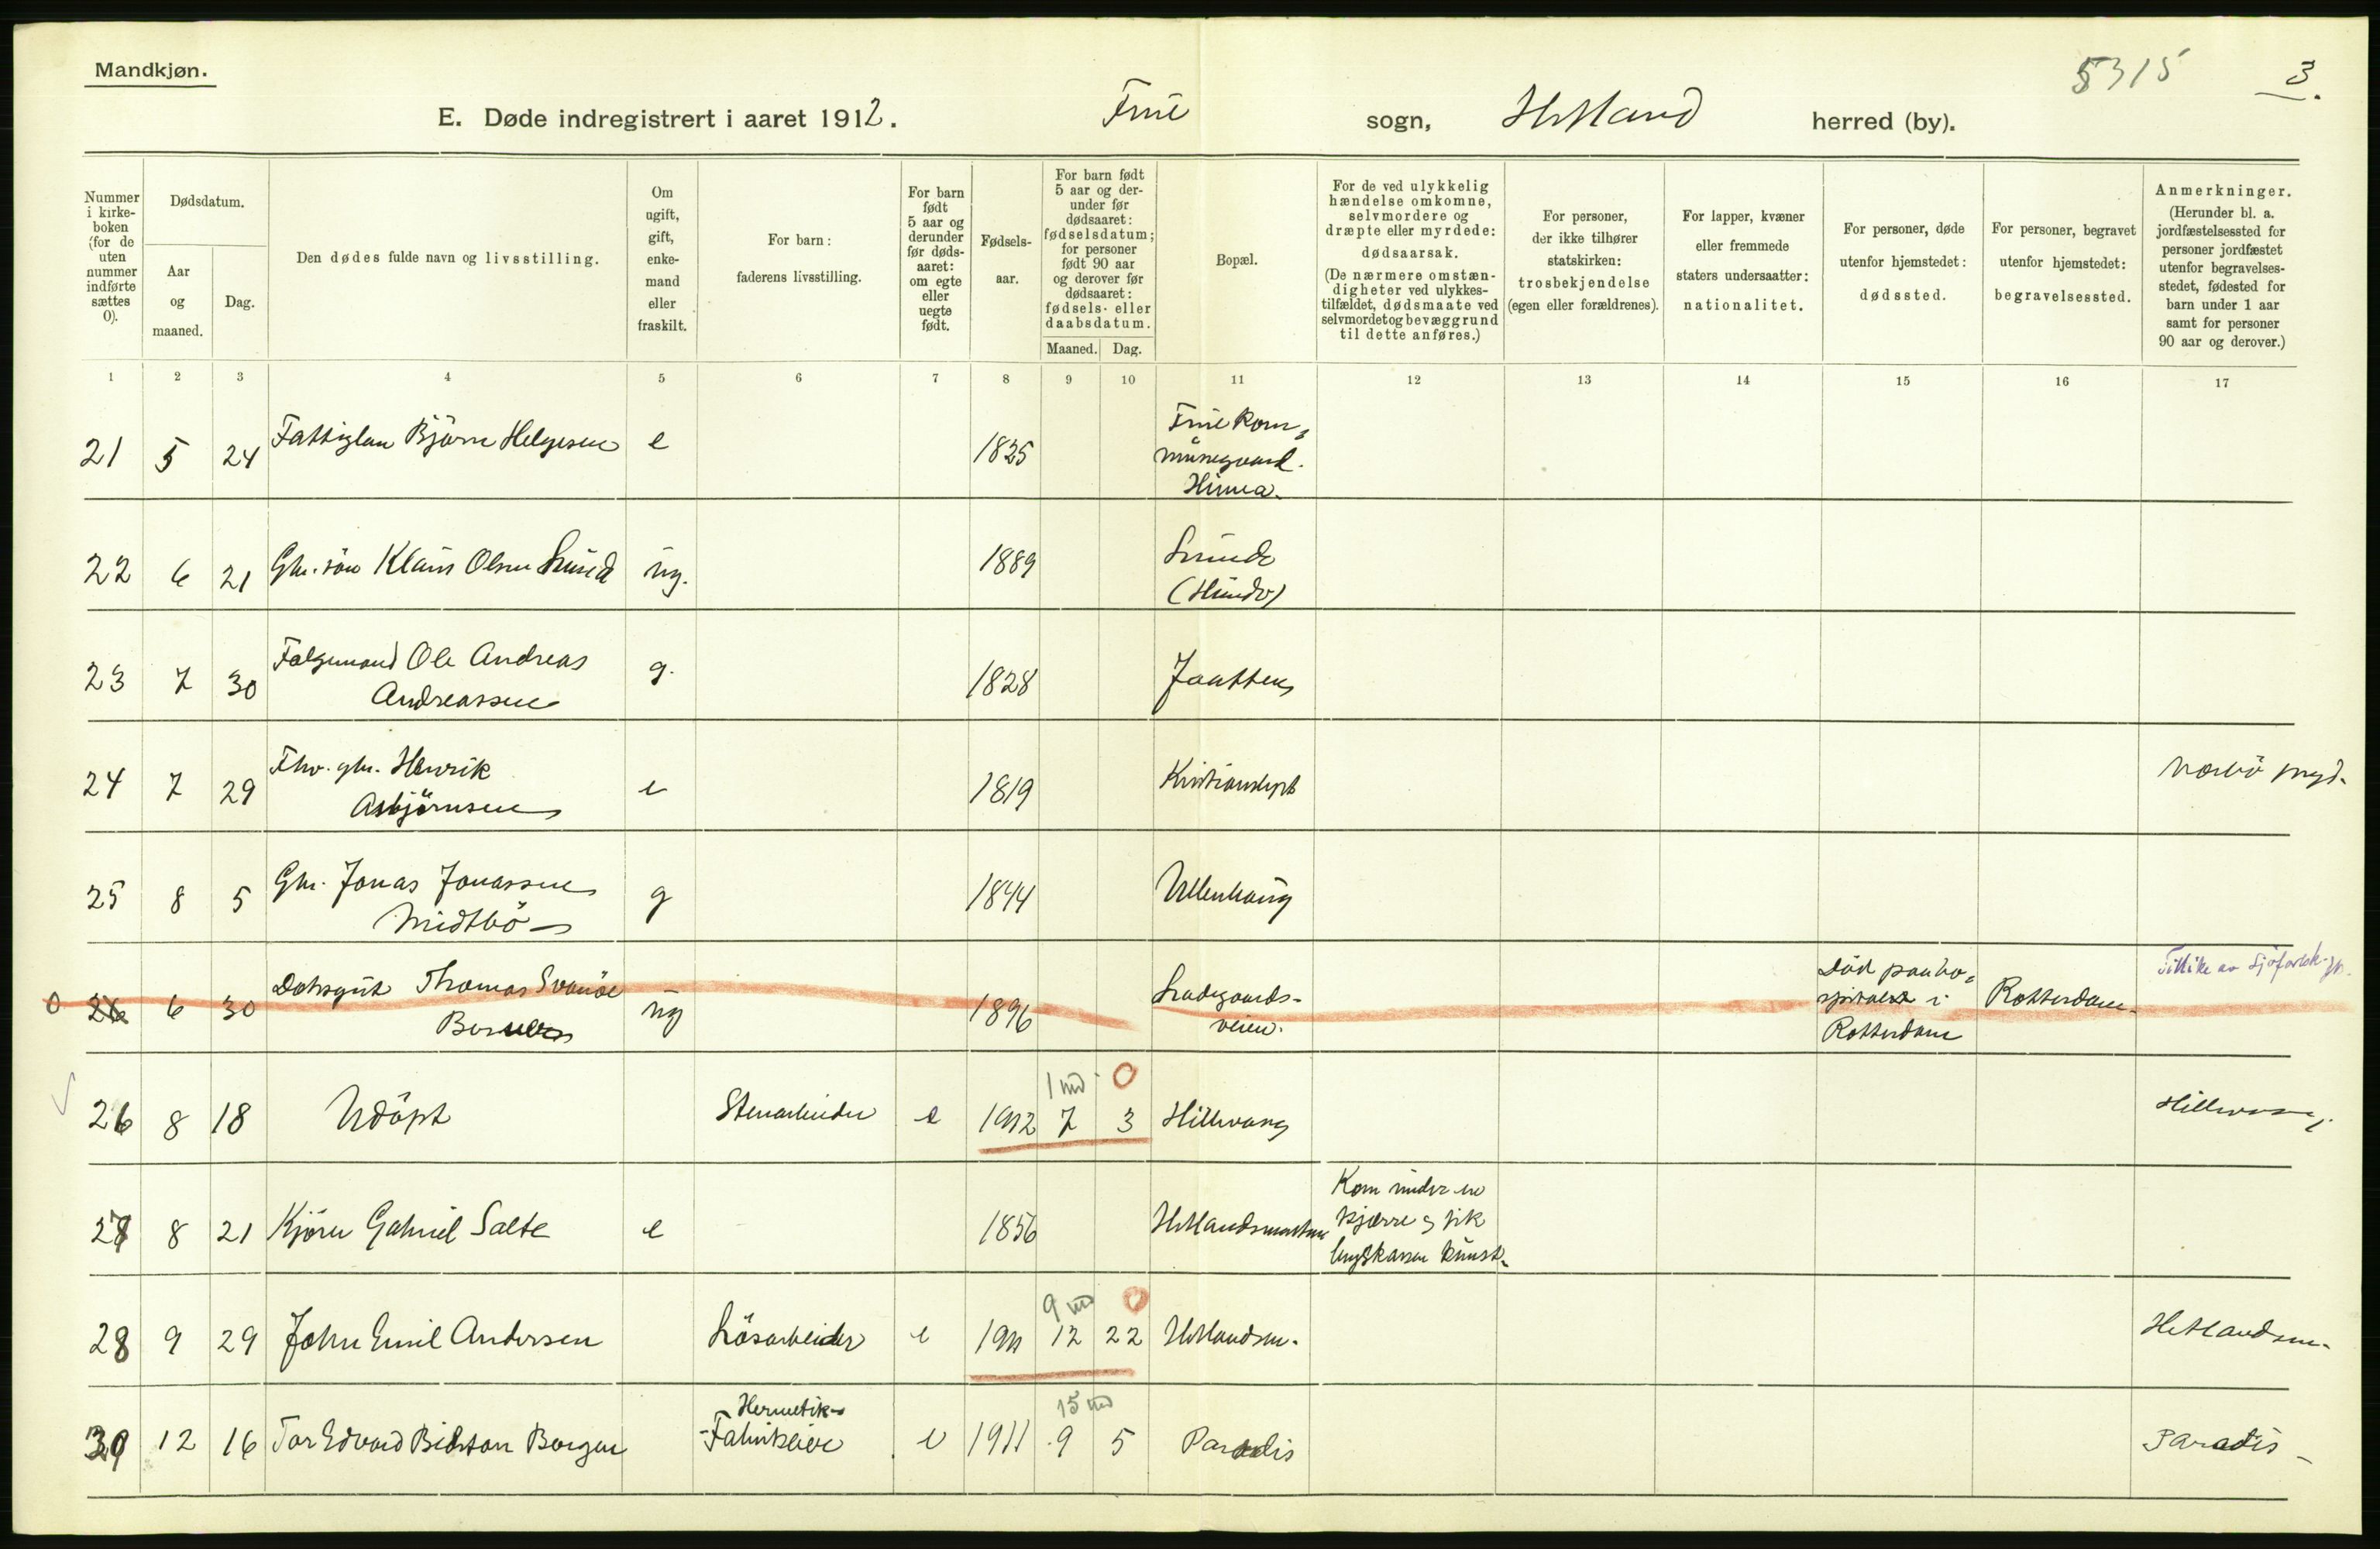 Mandkjøn.
5315
3.
E. Døde indregistrert i aaret 1912. Frue sogn, Hetland herred (by).
Nummer i kirke-boken (for de uten nummer indførte sættes 0).
Dødsdatum.
Aar og maaned.
Dag.
Den dødes fulde navn og livsstilling.
Om ugift, gift, enke-mand eller fraskilt.
For barn: faderens livsstilling.
For barn født 5 aar og derunder før døds-aaret: om egte eller uegte født.
Fødsels-aar.
For barn født 5 aar og der-under før dødsaaret: fødselsdatum; for personer født 90 aar og derover før dødsaaret: fødsels- eller daabsdatum.
Maaned.
Dag.
Bopæl.
For de ved ulykkelig hændelse omkomne, selvmordere og dræpte eller myrdede: dødsaarsak.
(De nærmere omstæn-digheter ved ulykkes-tilfældet, dødsmaate ved selvmordet og bevæggrund til dette anføres.)
For personer, der ikke tilhører statskirken: trosbekjendelse (egen eller forældrenes).
For lapper, kvæner eller fremmede staters undersaatter: nationalitet.
For personer, døde utenfor hjemstedet: dødssted.
For personer, begravet utenfor hjemstedet: begravelsessted.
Anmerkninger.
(Herunder bl. a. jordfæstelsessted for personer jordfæstet utenfor begravelses-stedet, fødested for barn under 1 aar samt for personer 90 aar og derover.)
1 2 3 4 5 6 7 8 9 10 11 12 13 14 15 16 17
21 5 24 Fattiglem Björn Helgesen e 1825 Frue kom=
munegaard.
Hinna.
22 6 21 Gbr. sön Klaus Olsen Lunde ug. 1889 Lunde
(Hundv)
23 7 30 Følgemand Ole Andreas
Andreassen g. 1828 Jaatten
24 7 29 Fhv. gbr. Henrik
Asbjörnsen e 1819 Kristianslyst
25 8 5 Gbr. Jonas Jonassen
Midtbö g 1844 Ullenhaug
0 26 6 30 Dæksgut Thomas Svanöe
ug 1896 Ladegaards-
veien.
Död paa ho=
spitalet i
Rotterdam
Rotterdam.
26 8 18 Udöpt Stenarbeider e 1912 7 3 Hillevaag Hillevaag
1 md 0
27 8 21 Kjören Gabriel Salte e 1856 Hetlandsmarken
Kom under en
kjærre & fik
brystkassen knust.
28 9 29 John Emil Andersen Lösarbeider e 1911 12 22 Hetlandsm. Hetlandsm.
9 md 0
Hermetik-
12 16 Tor Edvard Bidstan Bergen e 1911 9 5 Paradis Paradis
15 md